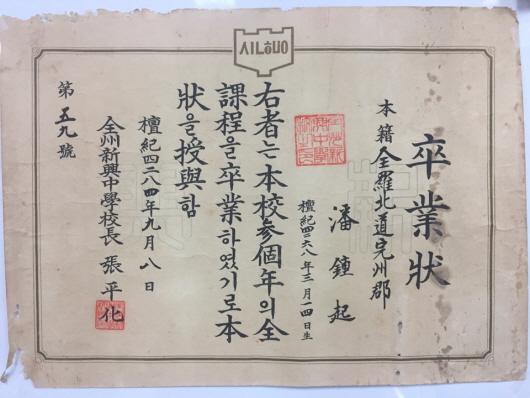 卒業狀
本籍 全羅北道完州郡
潘鍾起
檀紀四二六八年三月一四日生
右者는本校參個年의全
課程을卒業하였기로本
狀을授與함
檀紀四二八四年九月八日
全州新興中學校長 張平化
第五九號